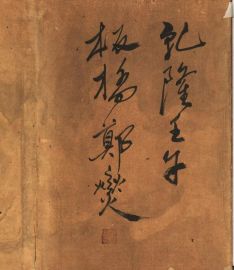 乾隆壬午
板橋鄭燮